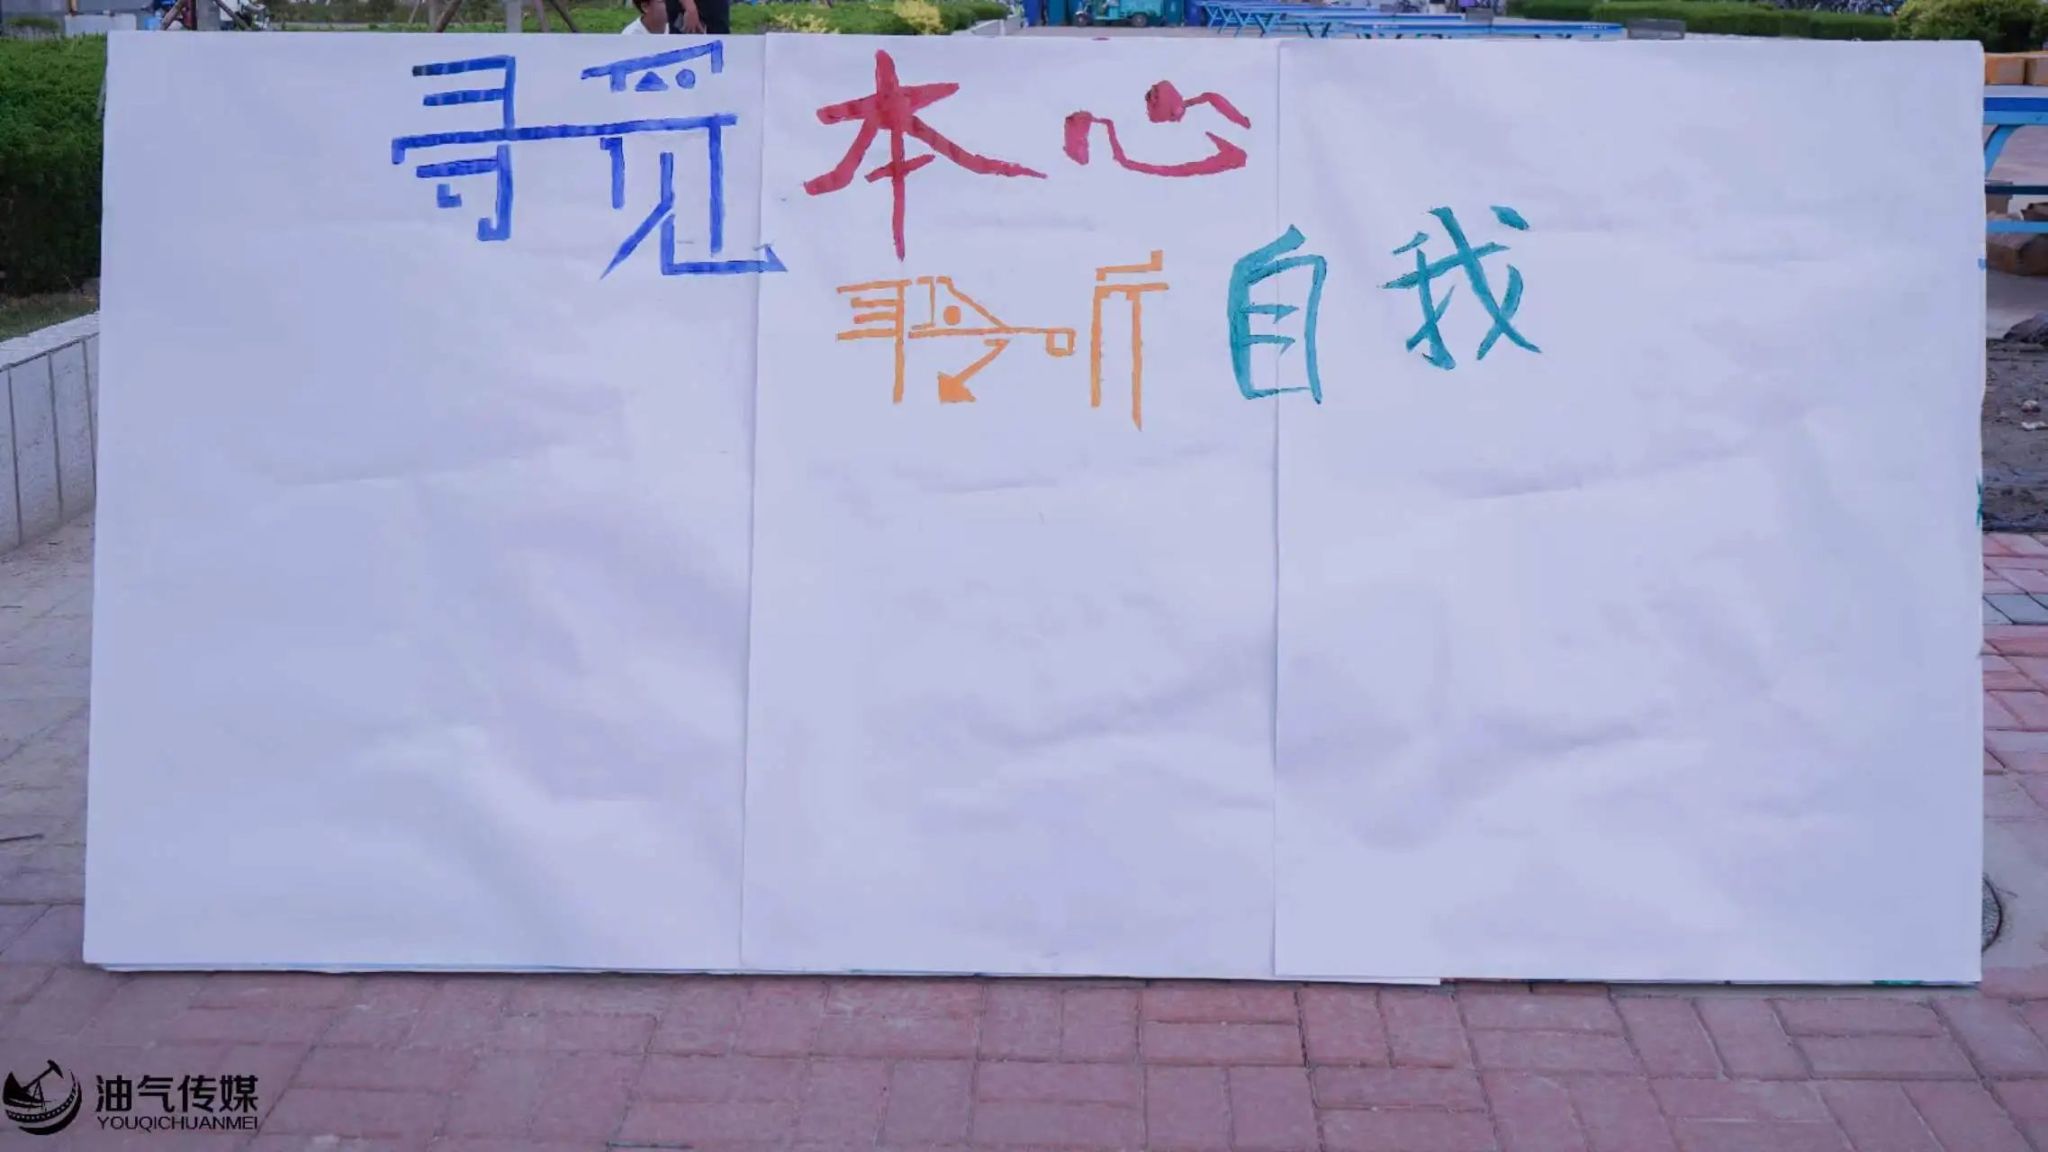 寻觅本心
聆听自我
油气传媒
YOUQICHUANMEI